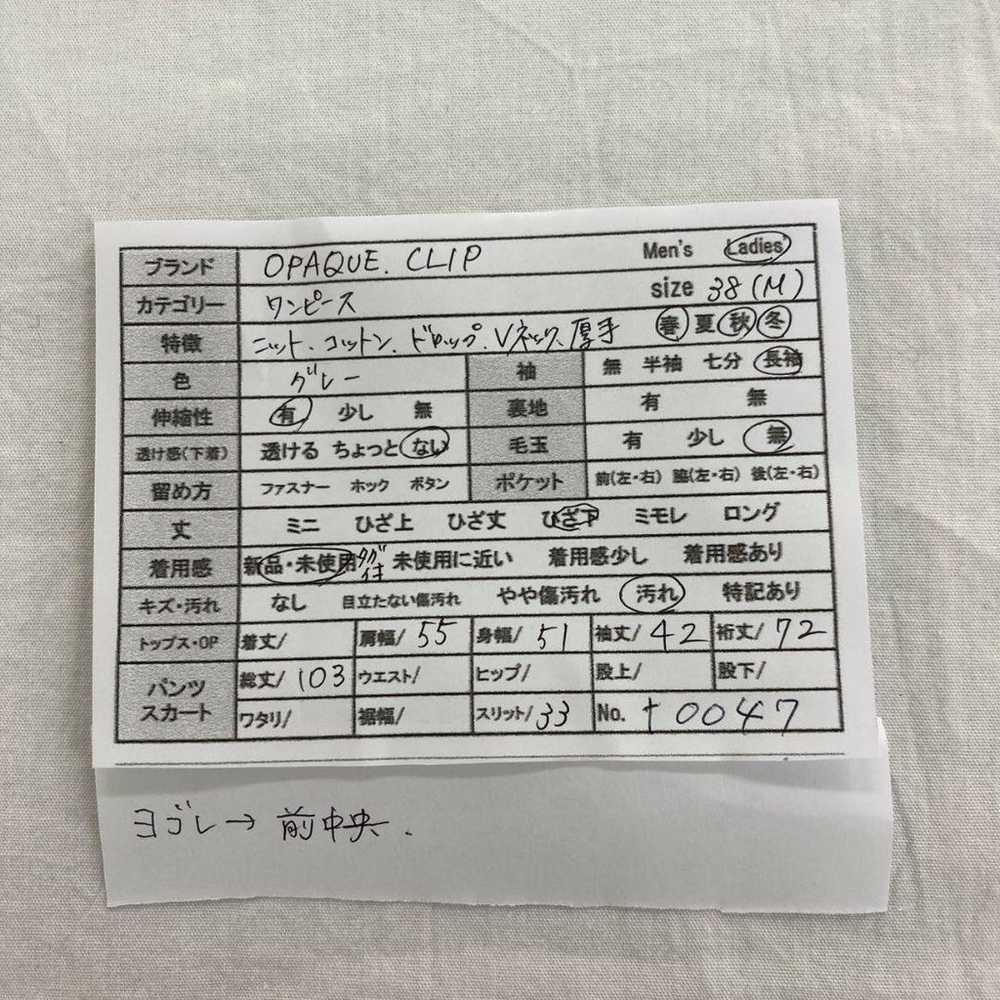 ブランド OPAQUE. CLIP Men's Ladies'
カテゴリー ワンピース size 38(M)
特徴 ニット、コットン、ドロップ、Vネック、厚手 春 夏 秋 冬
色 グレー 袖 無 半袖 七分 長袖
伸縮性 有 少し 無 裏地 有 無
透け感(下着) 透ける ちょっと ない 毛玉 有 少し 無
留め方 ファスナー ホック ボタン ポケット 前(左・右) 脇(左・右) 後(左・右)
丈 ミニ ひざ上 ひざ丈 ひざ下 ミモレ ロング
着用感 新品・未使用 タグ付 未使用に近い 着用感少し 着用感あり
キズ・汚れ なし 目立たない傷汚れ やや傷汚れ 汚れ 特記あり
トップス・OP 着丈/ 肩幅/ 55 身幅/ 51 袖丈/ 42 裄丈/ 72
パンツ スカート 総丈/ 103 ウエスト/ ヒップ/ 股上/ 股下/
ワタリ/ 裾幅/ スリット/ 33 No. t0047
ヨゴレ→前中央.